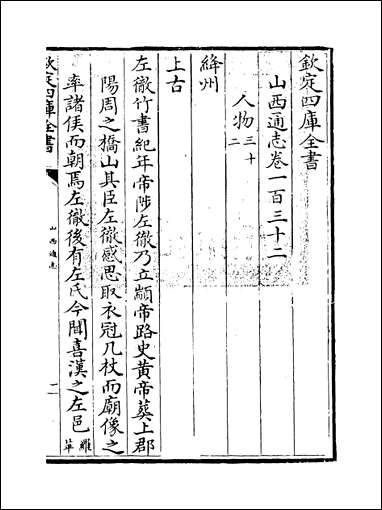 欽定四庫全書
山西通志卷一百三十二
人物三十二
絳州
上古
左徹竹書紀年帝陟左徹乃立顓帝路史黄帝葬上郡
陽周之橋山其臣左徹感思取衣冠几杖而廟像之
率諸侯而朝焉左徹後有左氏今聞喜漢之左邑
羅苹
欽定四庫全書
山西通志
一